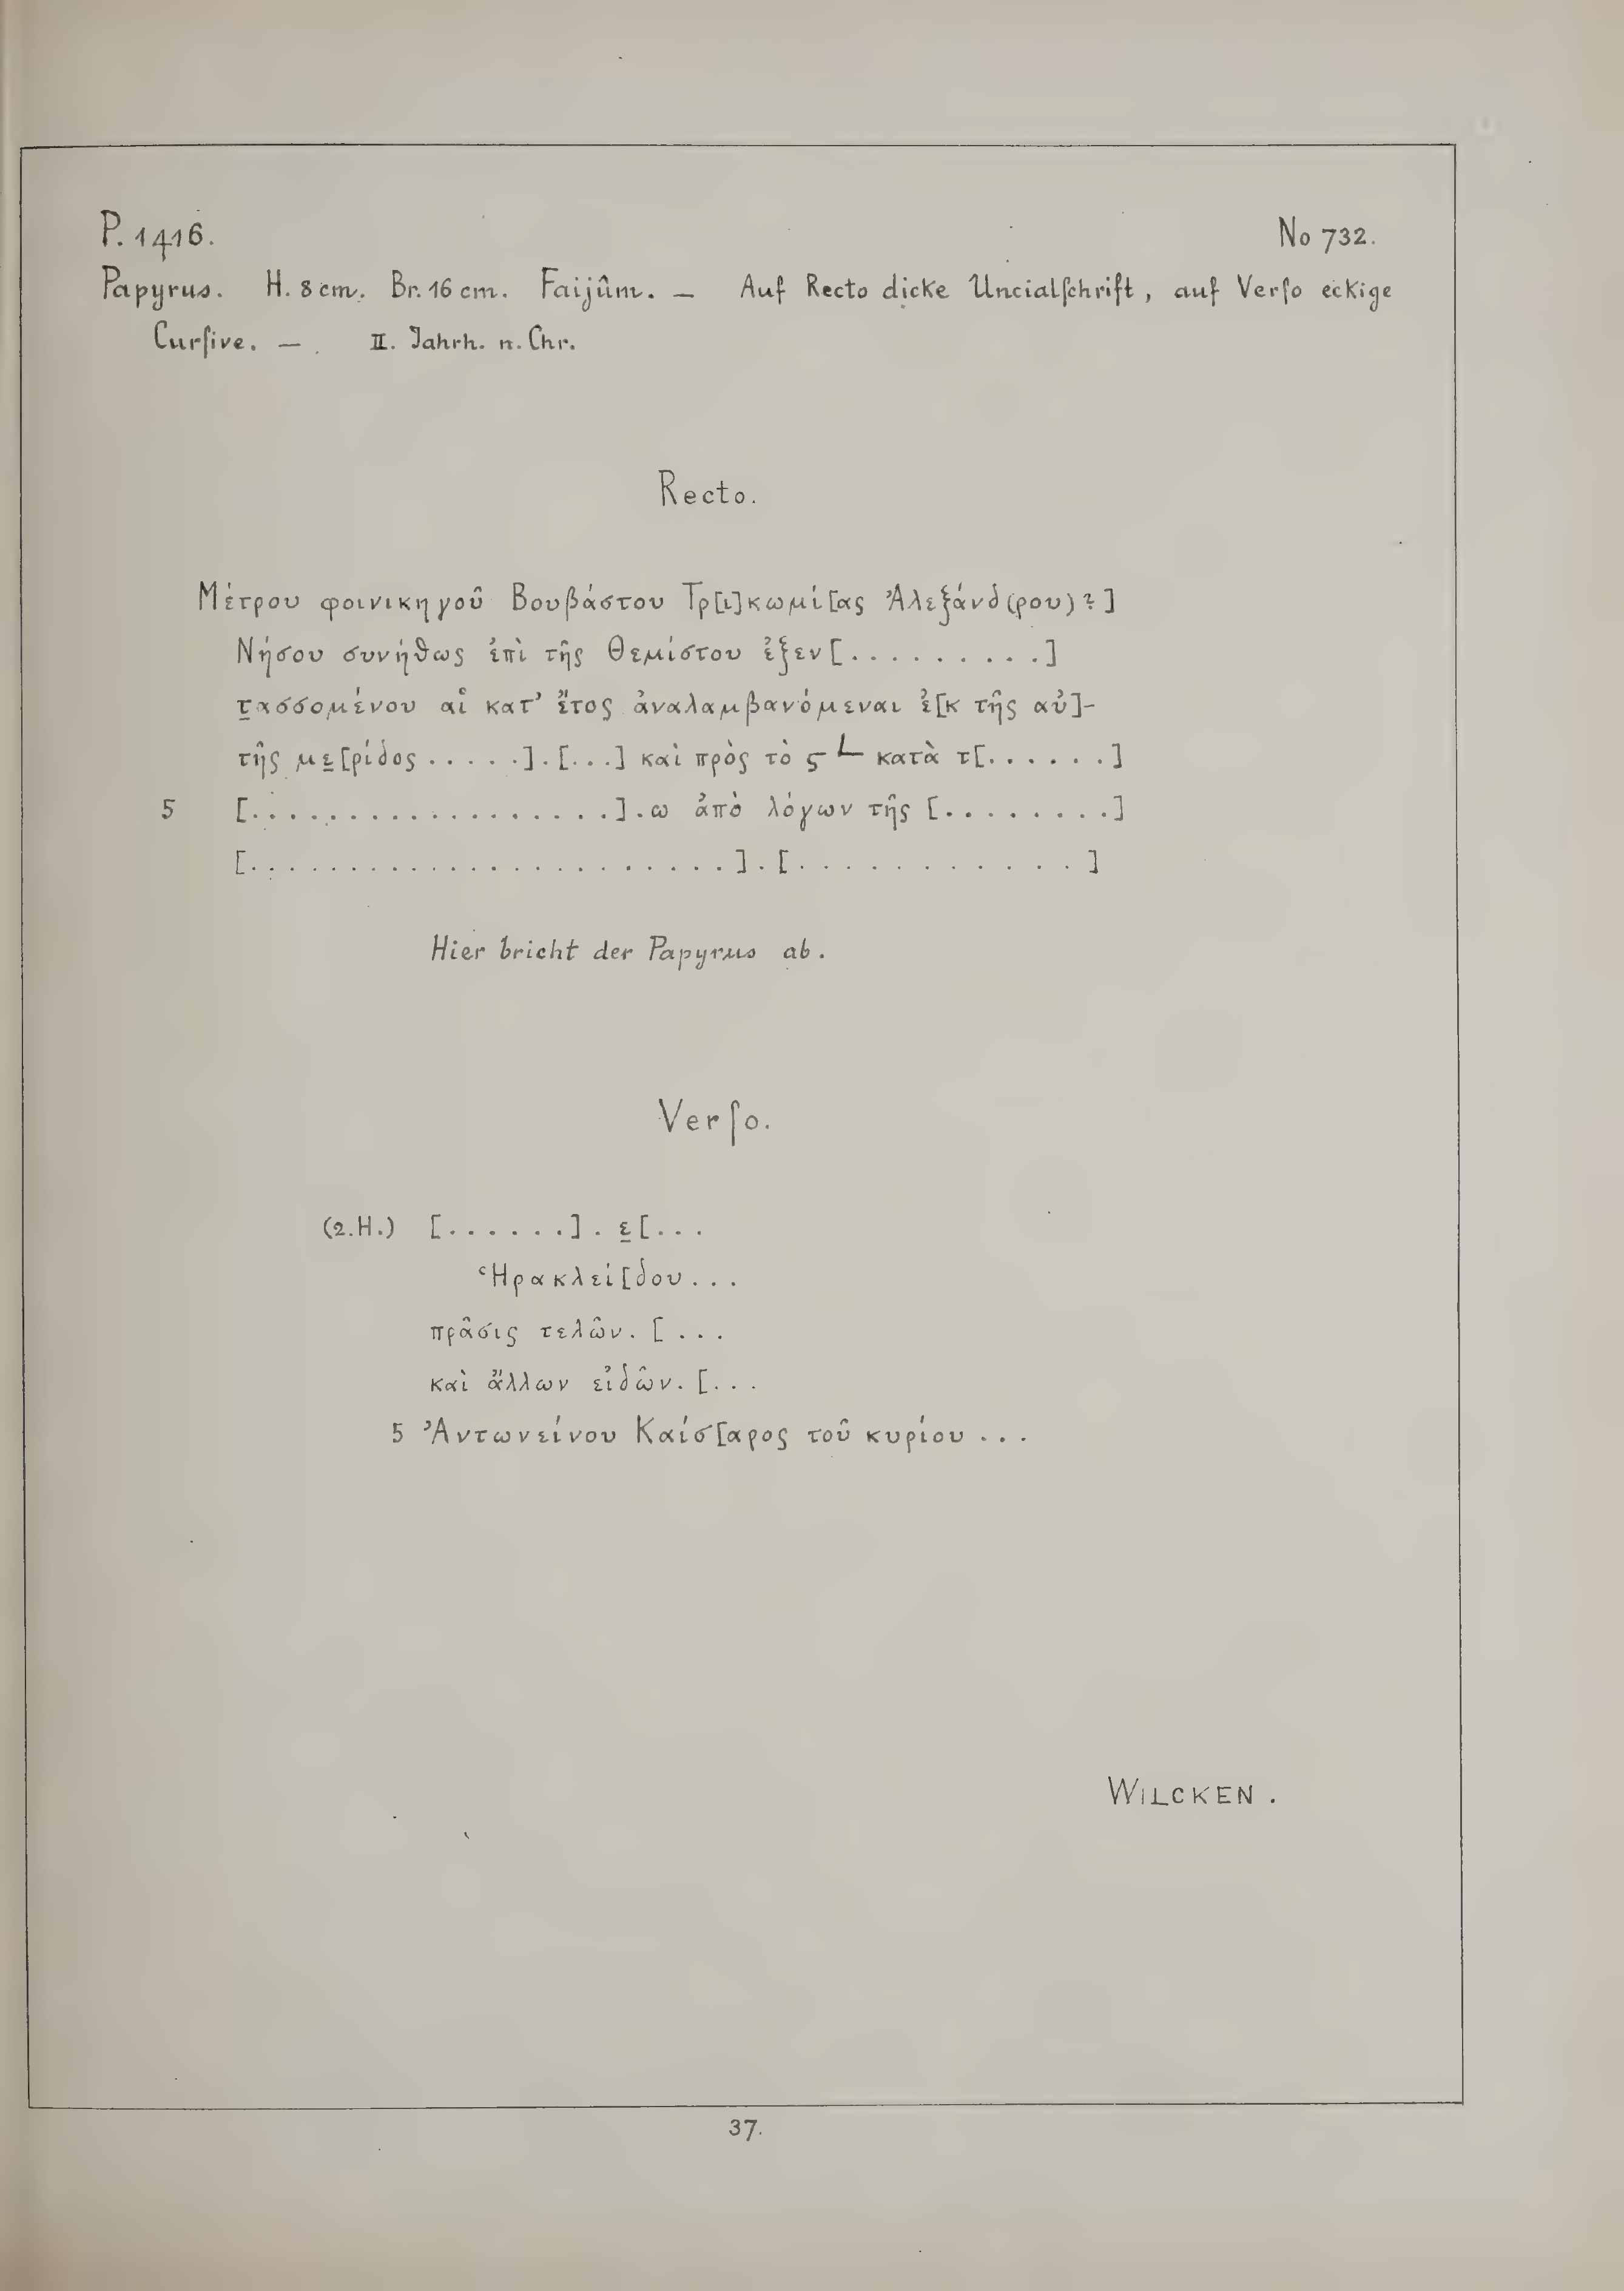 P. 1416. No 732.
Papyrus. H. 8 cm. Br. 16 cm. Faijûm. — Auf Recto dicke Uncialſchrift, auf Verſo eckige
Curſive. — II. Jahrh. n. Chr.
Recto.
Μέτρου φοινικηγοῦ Βουβάστου Τρ[ι]κωμί[ας Ἀλεξάνδ(ρου)?]
Νήσου συνήθως ἐπὶ τῆς Θεμίστου ἐξεν[. . . . . . . . .]
τ̲ασσομένου αἱ κατ’ ἔτος ἀναλαμβανόμεναι ἐ[κ τῆς αὐ]-
τῆς με̲[ρίδος . . . . .] . [. . .] καὶ πρὸς τὸ ϛ L κατὰ τ[. . . . . .]
5 [. . . . . . . . . . . . . . . . . .] . ω ἀπὸ λόγων τῆς [. . . . . . . .]
[. . . . . . . . . . . . . . . . . . . . . . .] . [. . . . . . . . . . . .]
Hier bricht der Papyrus ab.
Verſo.
(2. H.) [. . . . . .] . ε̲[. . .
Ἡρακλεί[δου . . .
πρᾶσις τελῶν. [ . . .
καὶ ἄλλων εἰδῶν. [. . .
5 Ἀντωνείνου Καίσ[αρος τοῦ κυρίου . . .
WILCKEN.
37.